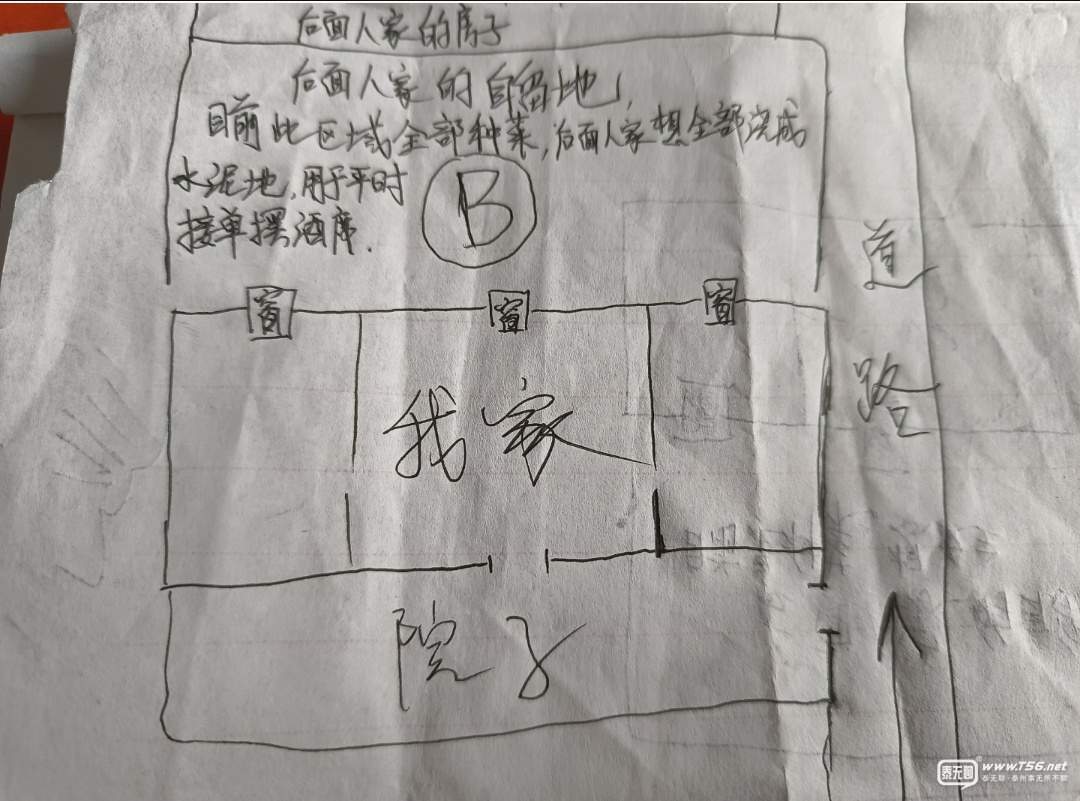 后面人家的房子
后面人家的自留地,
目前此区域全部种菜,后面人家想全部浇成
水泥地,用于平时
接单摆酒席.
B
窗 窗 窗
道
路
我家
院子
泰无聊 www.T56.net
泰无聊·泰州泰无所不聊